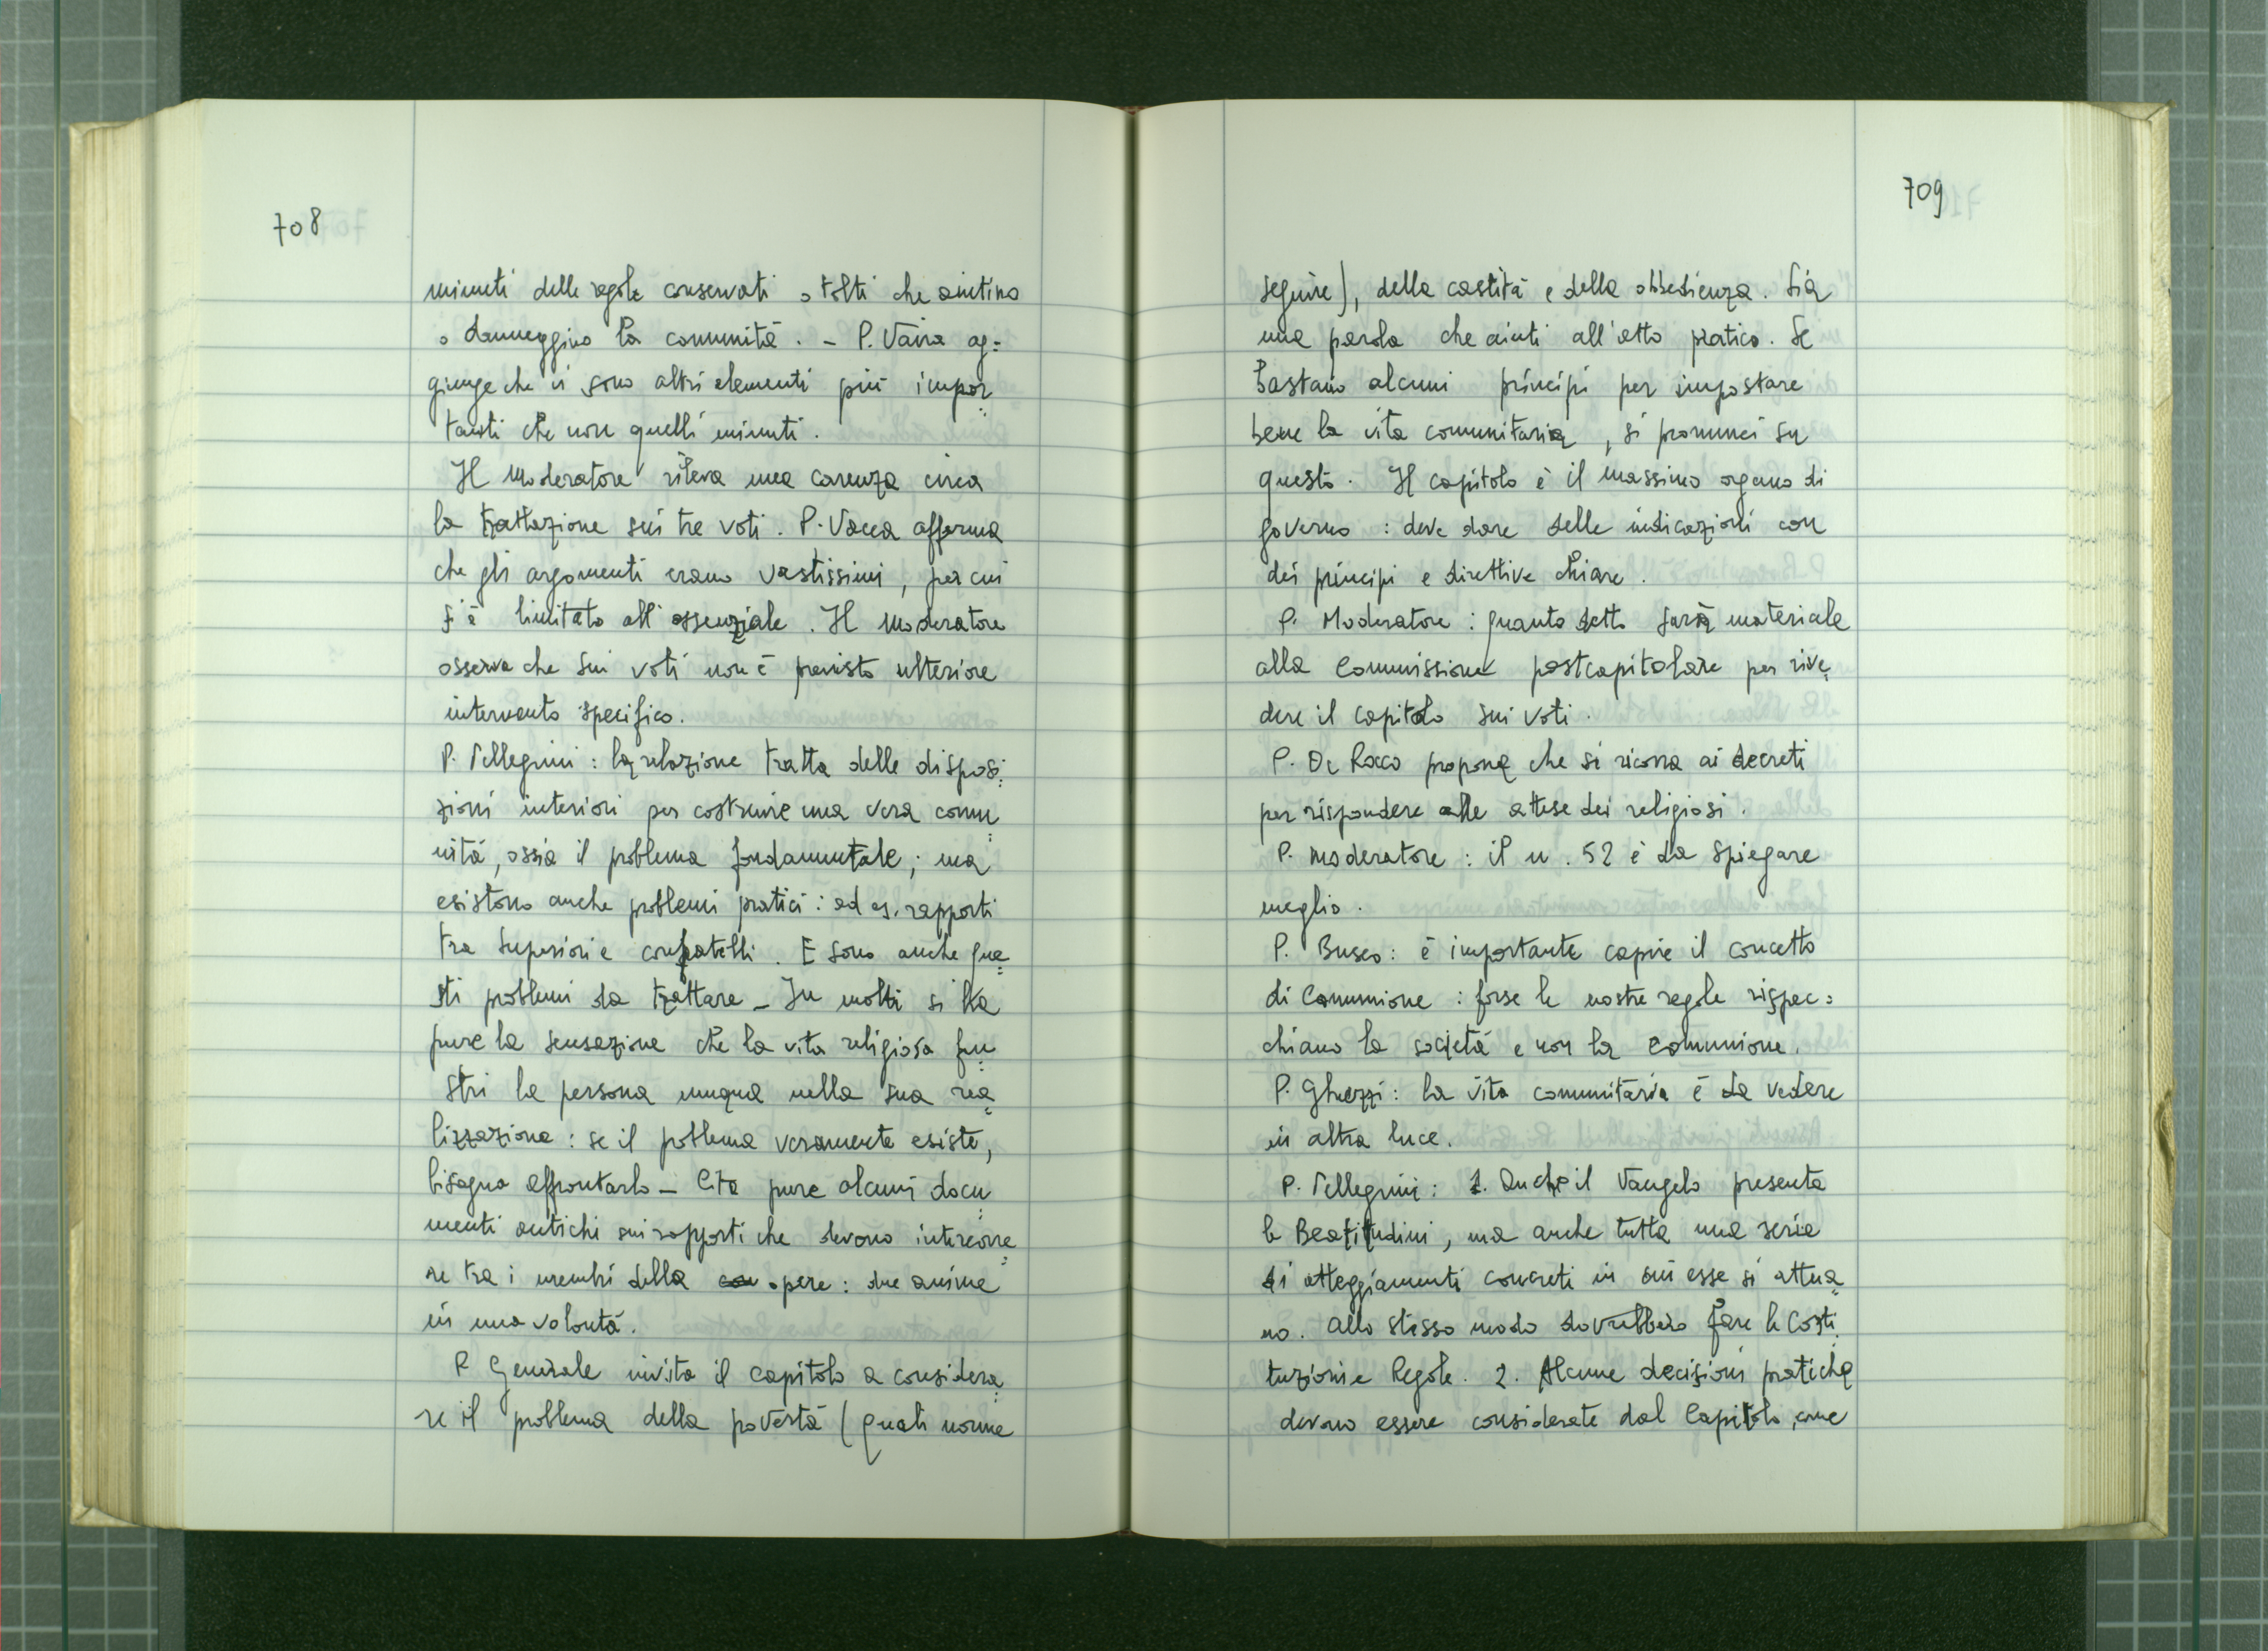 708
minuti delle regole conservati o tolti che aiutino
o danneggino la comunità. - P. Vaira ag=
giunge che vi sono altri elementi più impor=
tanti che non quelli minuti.
Il Moderatore rileva una carenza circa
la trattazione sui tre voti. P. Vacca afferma
che gli argomenti erano vastissimi, per cui
s'è limitato all'essenziale. Il Moderatore
osserva che sui voti non è previsto ulteriore
intervento specifico.
P. Pellegrini: la relazione tratta delle disposi=
zioni interiori per costruire una vera comu=
nità, ossia il problema fondamentale; ma
esistono anche problemi pratici: ad es. rapporti
tra Superiori e confratelli. E sono anche que=
sti problemi da trattare - In molti si ha
pure la sensazione che la vita religiosa fru=
stri la persona umana nella sua rea=
lizzazione: se il problema veramente esiste,
bisogna affrontarlo - Cita pure alcuni docu=
menti antichi sui rapporti che devono intercorre=
re tra i membri della opere: due anime
in una volontà.
P. Generale invita il capitolo a considera=
re il problema della povertà (quali norme
709
seguire), della castità e della obbedienza. Sia
una parola che aiuti all'atto pratico. Se
bastano alcuni principi per impostare
bene la vita comunitaria, si pronunci su
questo. Il capitolo è il massimo organo di
governo: deve dare delle indicazioni con
dei principi e direttive chiare.
P. Moderatore: quanto detto sarà materiale
alla Commissione postcapitolare per rive=
dere il capitolo sui voti.
P. De Rocco propone che si ricorra ai decreti
per rispondere alle attese dei religiosi.
P. Moderatore: il n. 52 è da spiegare
meglio.
P. Busco: è importante capire il concetto
di Comunione: forse le nostre regole rispec=
chiano la società e non la comunione.
P. Ghezzi: la vita comunitaria è da vedere
in altra luce.
P. Pellegrini: 1. Anche il Vangelo presenta
le Beatitudini, ma anche tutta una serie
di atteggiamenti concreti in cui esse si attua=
no. Allo stesso modo dovrebbero fare le Costi=
tuzioni e Regole. 2. Alcune decisioni pratiche
devono essere considerate dal Capitolo, come